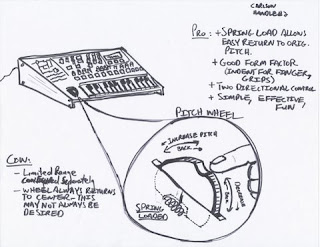 CARLSON
PRO: + SPRING LOAD ALLOWS
EASY RETURN TO ORIG.
PITCH.
+ GOOD FORM FACTOR
(INDENT FOR FINGER,
GRIPS)
+ TWO DIRECTIONAL CONTROL
+ SIMPLE, EFFECTIVE,
FUN
PITCH WHEEL
INCREASE PITCH
BACK
BACK
DECREASE
SPRING
LOADED
CON:
- Limited Range
Separately
- WHEEL ALWAYS RETURNS
TO CENTER - THIS
MAY NOT ALWAYS BE
DESIRED